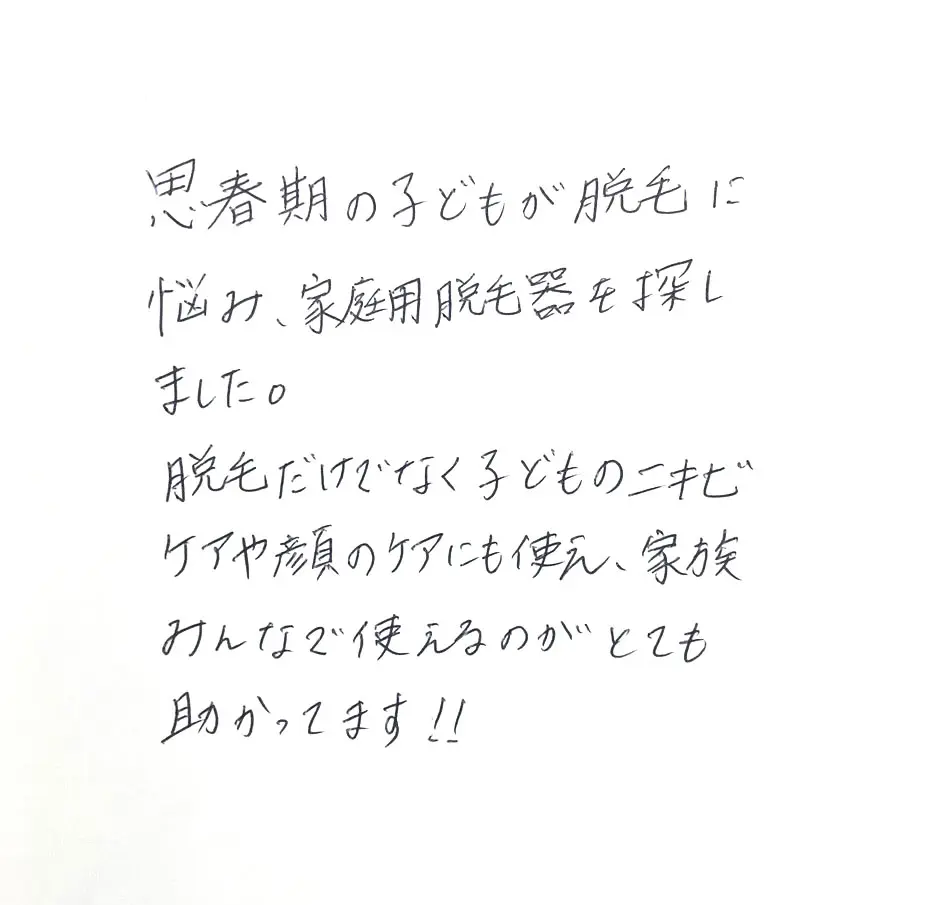 思春期の子どもが脱毛に
悩み、家庭用脱毛器を探し
ました。
脱毛だけでなく子どものニキビ
ケアや顔のケアにも使え、家族
みんなで使えるのがとても
助かってます!!